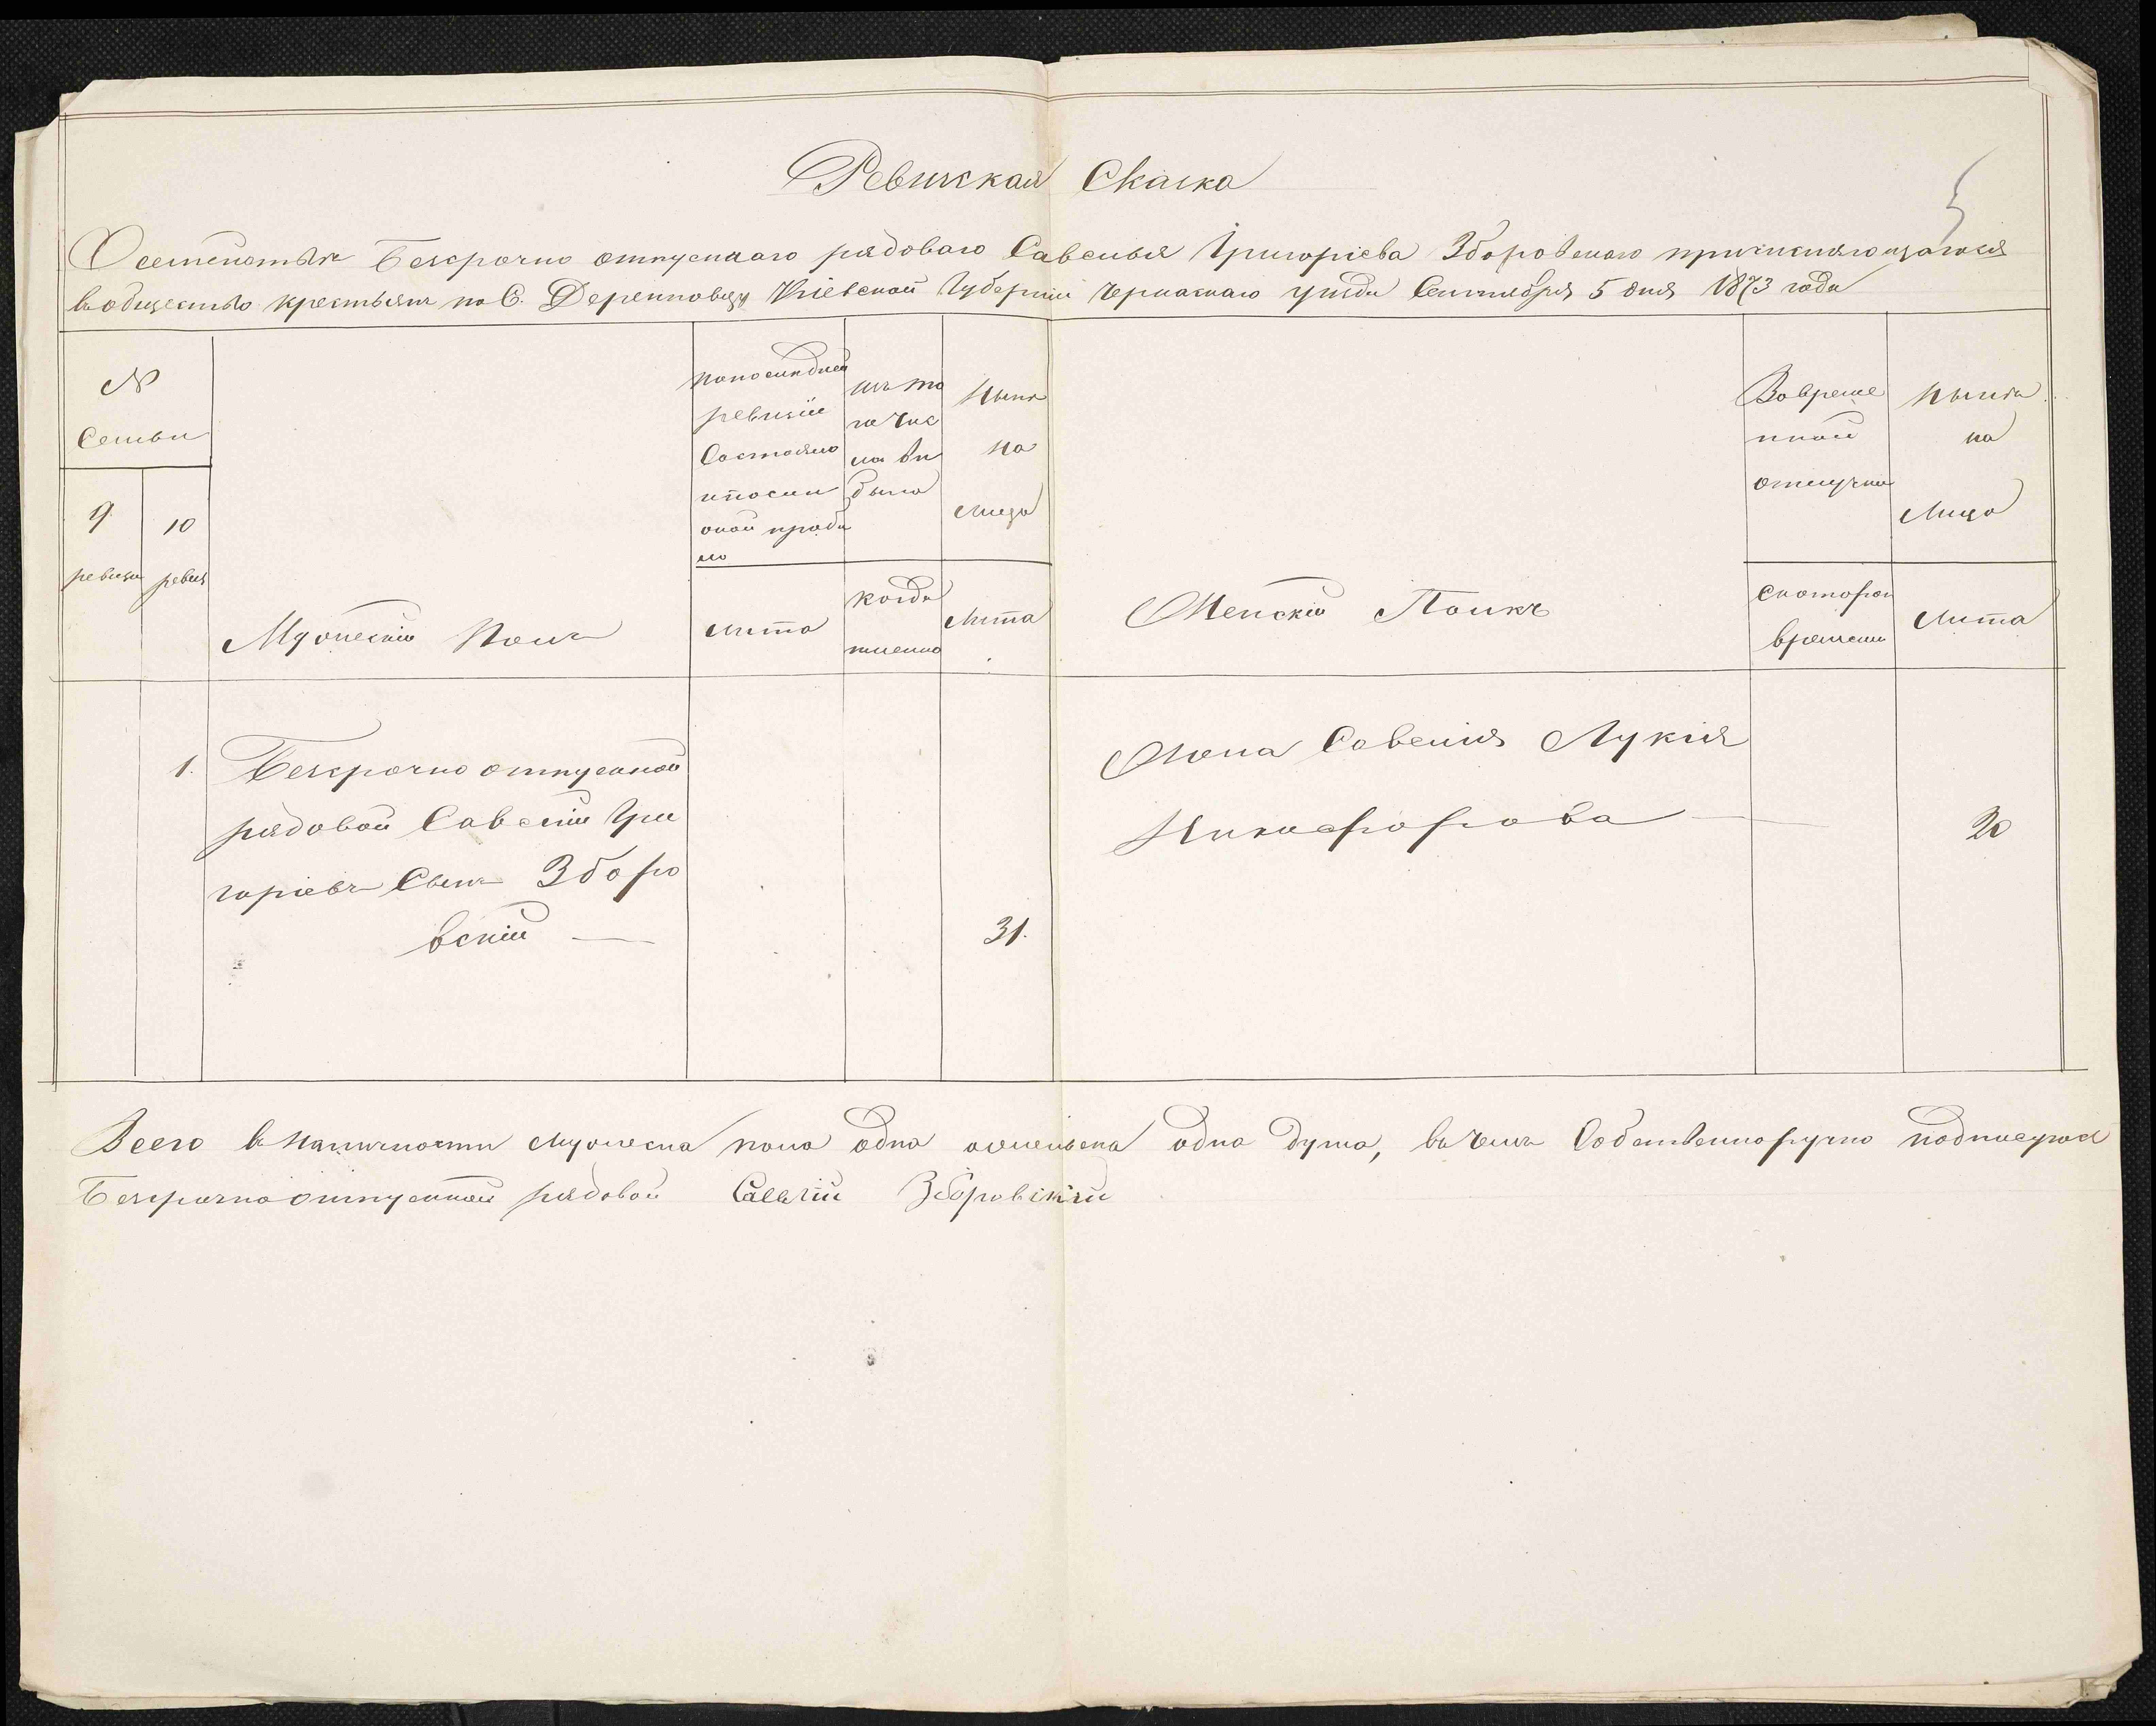 Ревизская Сказка
5
О семействѣ безсрочно отпускнаго рядоваго Савелья Григоріева Зборовскаго причисляющагося
въ общество крестьянъ по С. Деренковцу Кіевской Губерніи Черкаскаго уѣзда Сентября 5 дня 1873 года
№
Семьи
9
ревизи
10
ревиз
Мужескій Полъ
по последней
ревизіи
Состояло
и послѣ
оной приб
ло
лѣта
изъ то
го чис
ла вы
было
когда
именно
Нынѣ
на
лицо
лѣта
Женскій Полъ
Во време
нной
отлучки
с котораго
времени
Нынѣ
на
лицо
лѣта
1. Безсрочно отпускной
рядовой Савелій Гри
горіевъ Сынъ Зборо
вскій — 31.
Жена Савелія Лукія
Никифорова — 20
Всего въ наличности мужеска пола одна и женска одна душа, въ чемъ Собственноручно подписуюся
Безсрочноотпускной рядовой Савелій Зборовскій